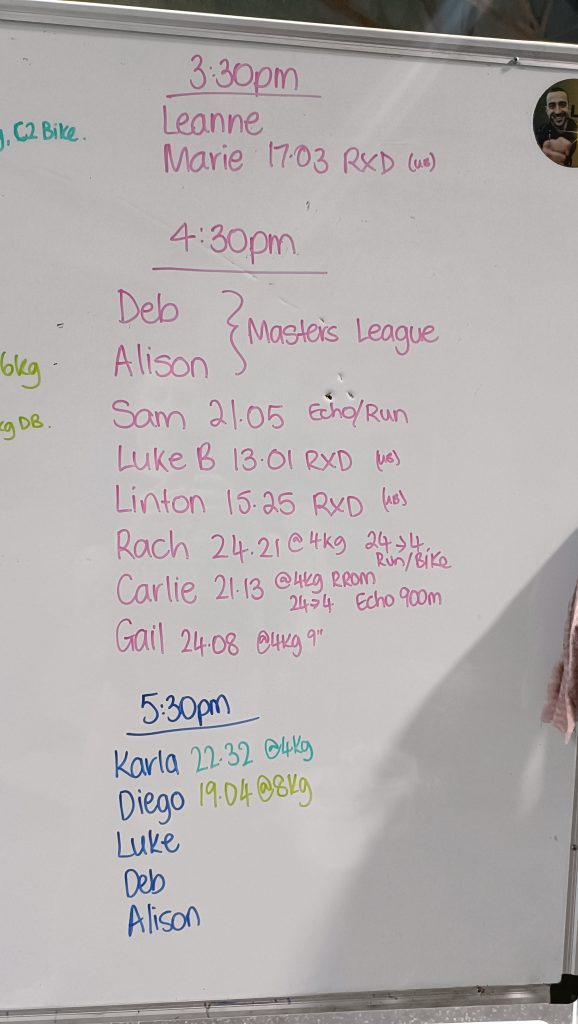 3:30pm
Leanne
Marie 17.03 RXD (µs)
4:30pm
Deb
Alison
} Masters League
Sam 21.05 Echo/Run
Luke B 13.01 RXD
Linton 15.25 RXD
Rach 24.21 @ 4kg 24→4
Run/Bike
Carlie 21.13 @4kg RROM
24→4 Echo 900m
Gail 24.08 @4kg 9"
5:30pm
Karla 22.32 @4kg
Diego 19.04 @8kg
Luke
Deb
Alison
, C2 Bike.
6kg
kg DB.